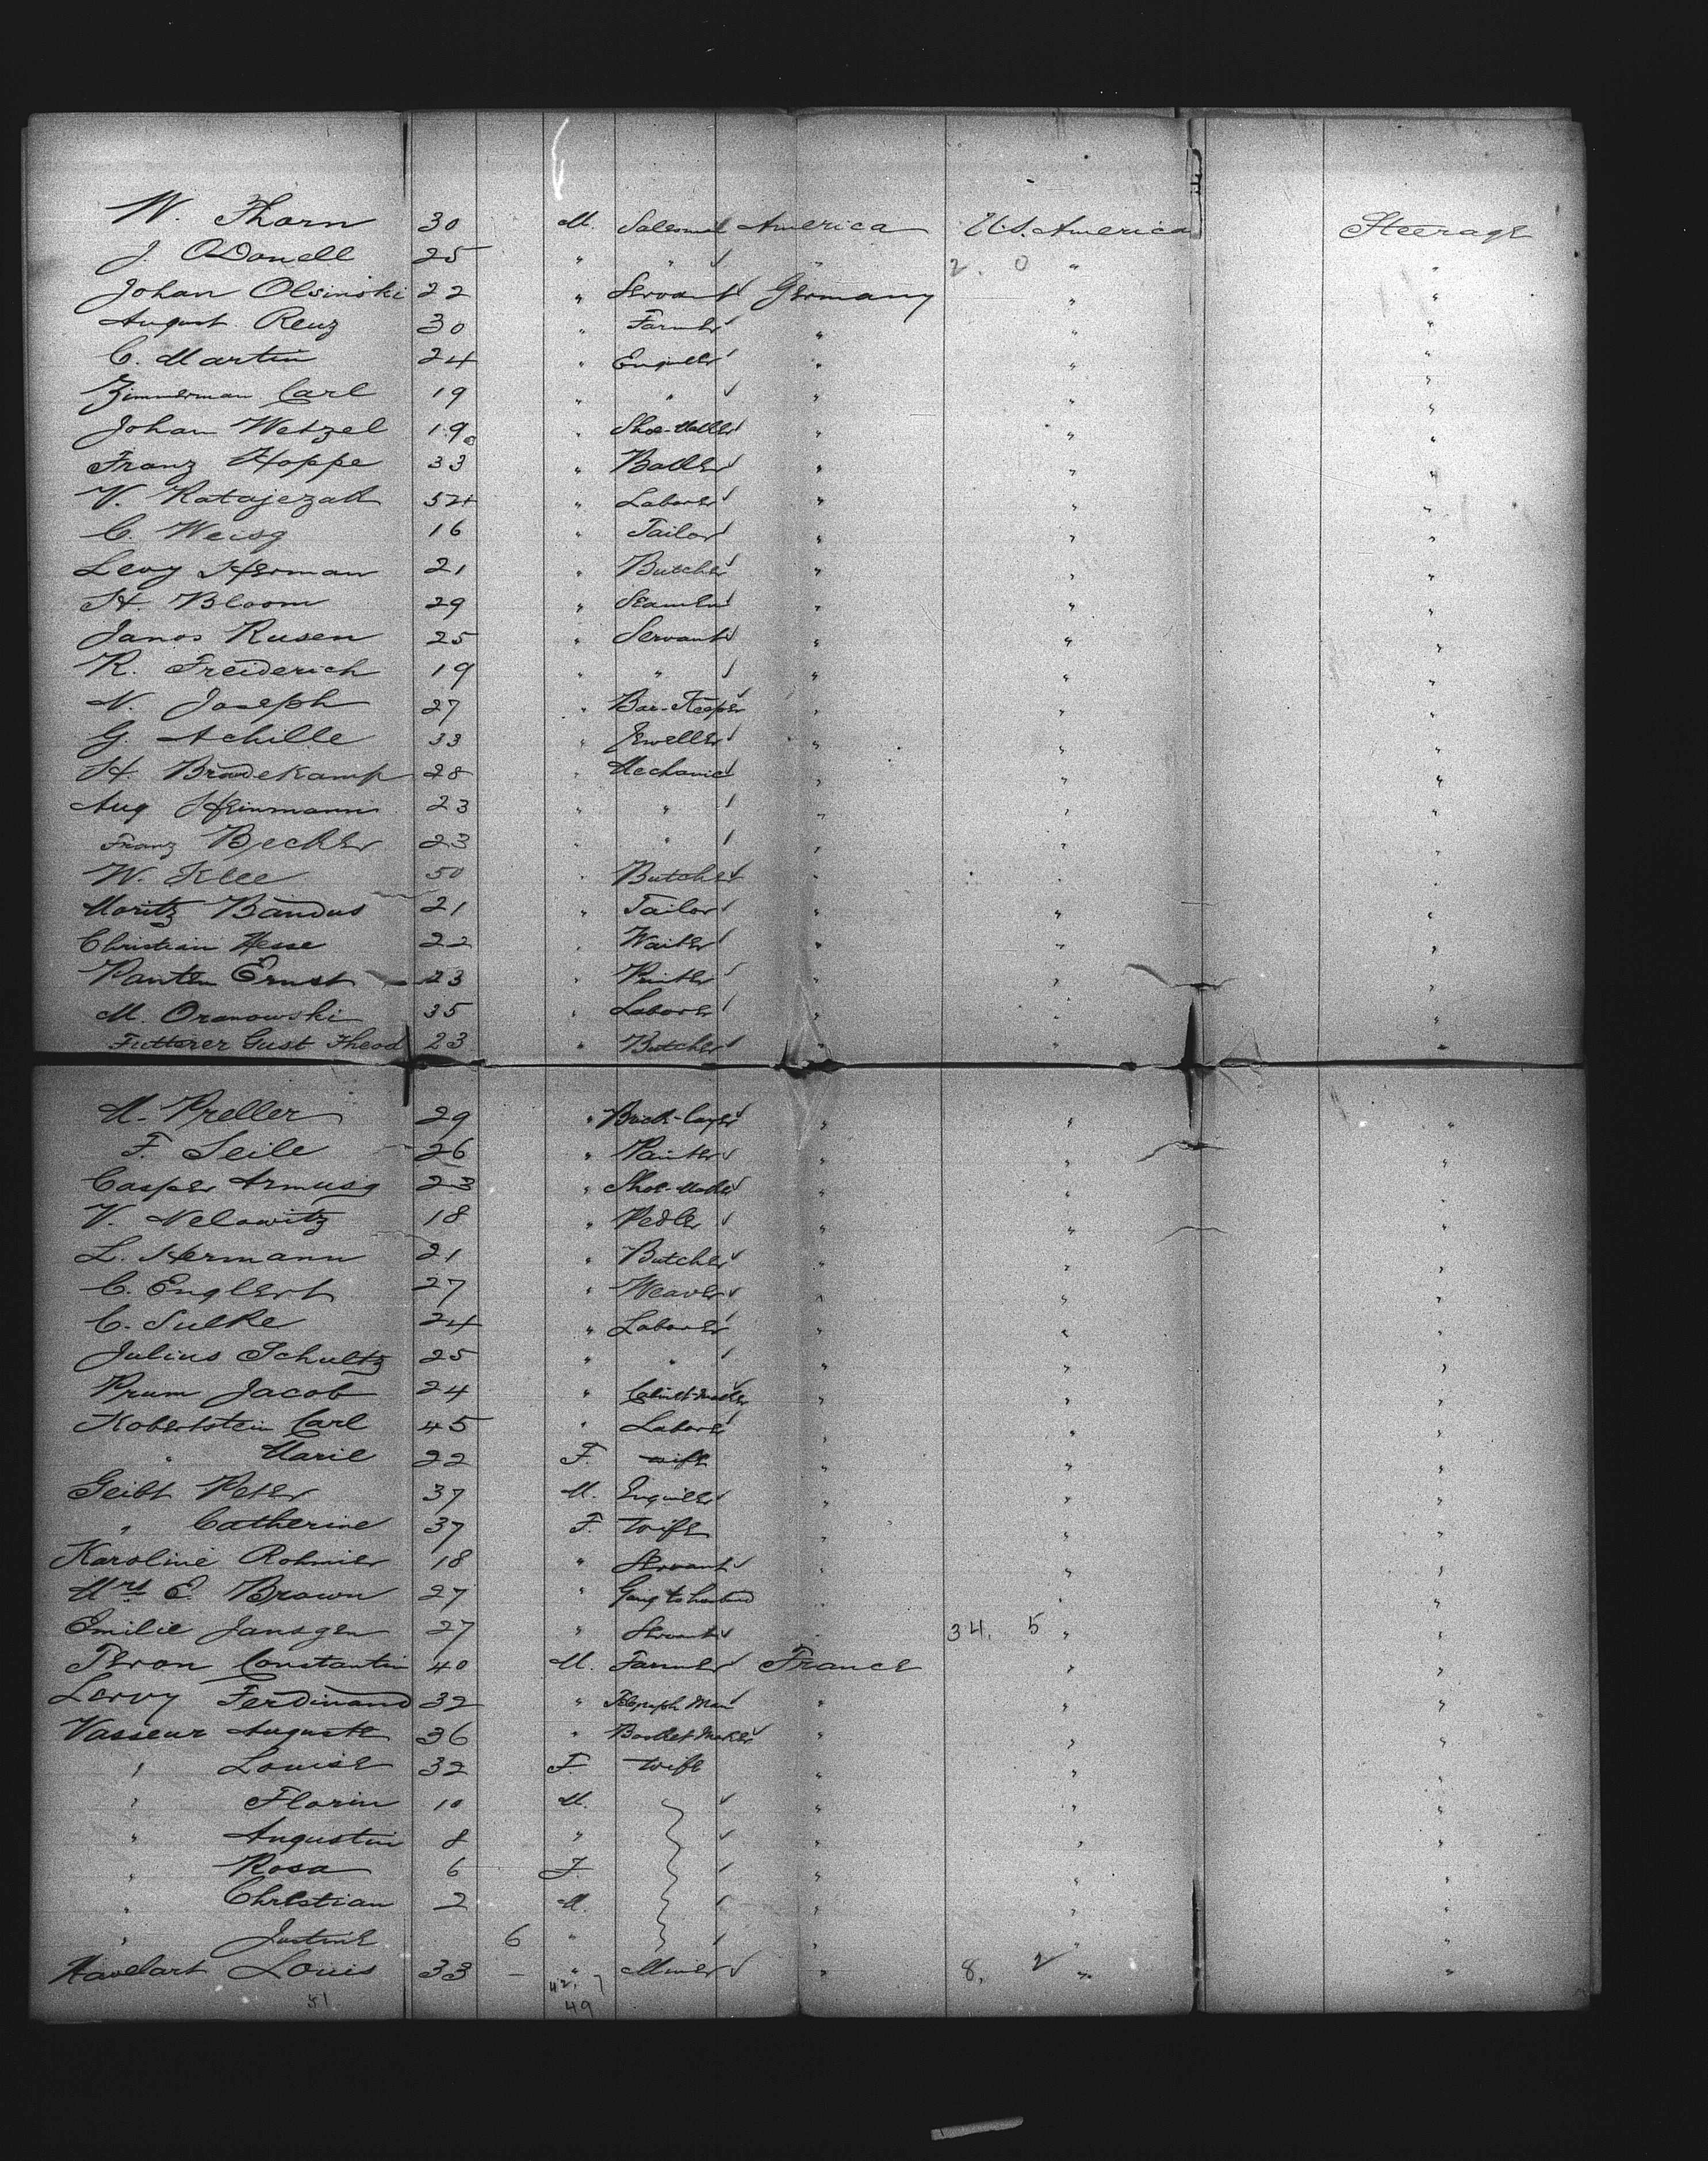 W. Thorn 30 M. Salesman America U.S. America Steerage
J. O'Donell 25 " " " 2. 0 " "
Johan Olsinski 22 " Servant Germany " "
August Renz 30 " Farmer " " "
C. Martin 24 " Engineer " " "
Zimmerman Carl 19 " " " " "
Johan Wetzel 19 " Shoe-Maker " " "
Franz Hoppe 33 " Baker " " "
V. Ratajezak 54 " Laborer " " "
C. Weisg 16 " Tailor " " "
Levy Herman 21 " Butcher " " "
H. Bloom 29 " Seamen " " "
Janos Rusen 25 " Servant " " "
R. Freiderich 19 " " " " "
N. Joseph 27 " Bar-Keeper " " "
G. Achille 33 " Jeweller " " "
H. Bradekamp 28 " Mechanic " " "
Aug Heinmann 23 " " " " "
Franz Becker 23 " " " " "
W. Klee 50 " Butcher " " "
Moritz Bandus 21 " Tailor " " "
Christian Hesse 22 " Waiter " " "
Panten Ernst 23 " Printer " " "
M. Oranowski 35 " Laborer " " "
Futterer Gust Theod 23 " Butcher " " "
M. Preller 29 " Brick-layer " " "
F. Seile 26 " Painter " " "
Casper Armusg 23 " Shoe-Maker " " "
V. Nelowitz 18 " Pedler " " "
L. Hermann 21 " Butcher " " "
C. Englert 27 " Weaver " " "
C. Sulke 24 " Laborer " " "
Julius Schultz 25 " " " " "
Prum Jacob 24 " Cabinet-Maker " " "
Kobertstein Carl 45 " Laborer " " "
" Marie 22 F. wife " " "
Geibt Peter 37 M. Engineer " " "
" Catherine 37 F. wife " " "
Karoline Rohmier 18 " Servant " " "
Mrs E. Brown 27 " Going to husband " " "
Emilie Jansgen 27 " Servant " 34. 5 " "
Peron Constantin 40 M. Farmer France " "
Leroy Ferdinand 32 " Telegraph Man " " "
Vasseur Auguste 36 " Basket Maker " " "
" Louise 32 F. wife " " "
" Florin 10 M. " " "
" Augustin 8 " " " "
" Rosa 6 F. " " "
" Christian 2 M. " " "
" Justine 6 " " " "
Havelart Louis 33 - " Miner " 8. 2 " "
51 42. 7
49